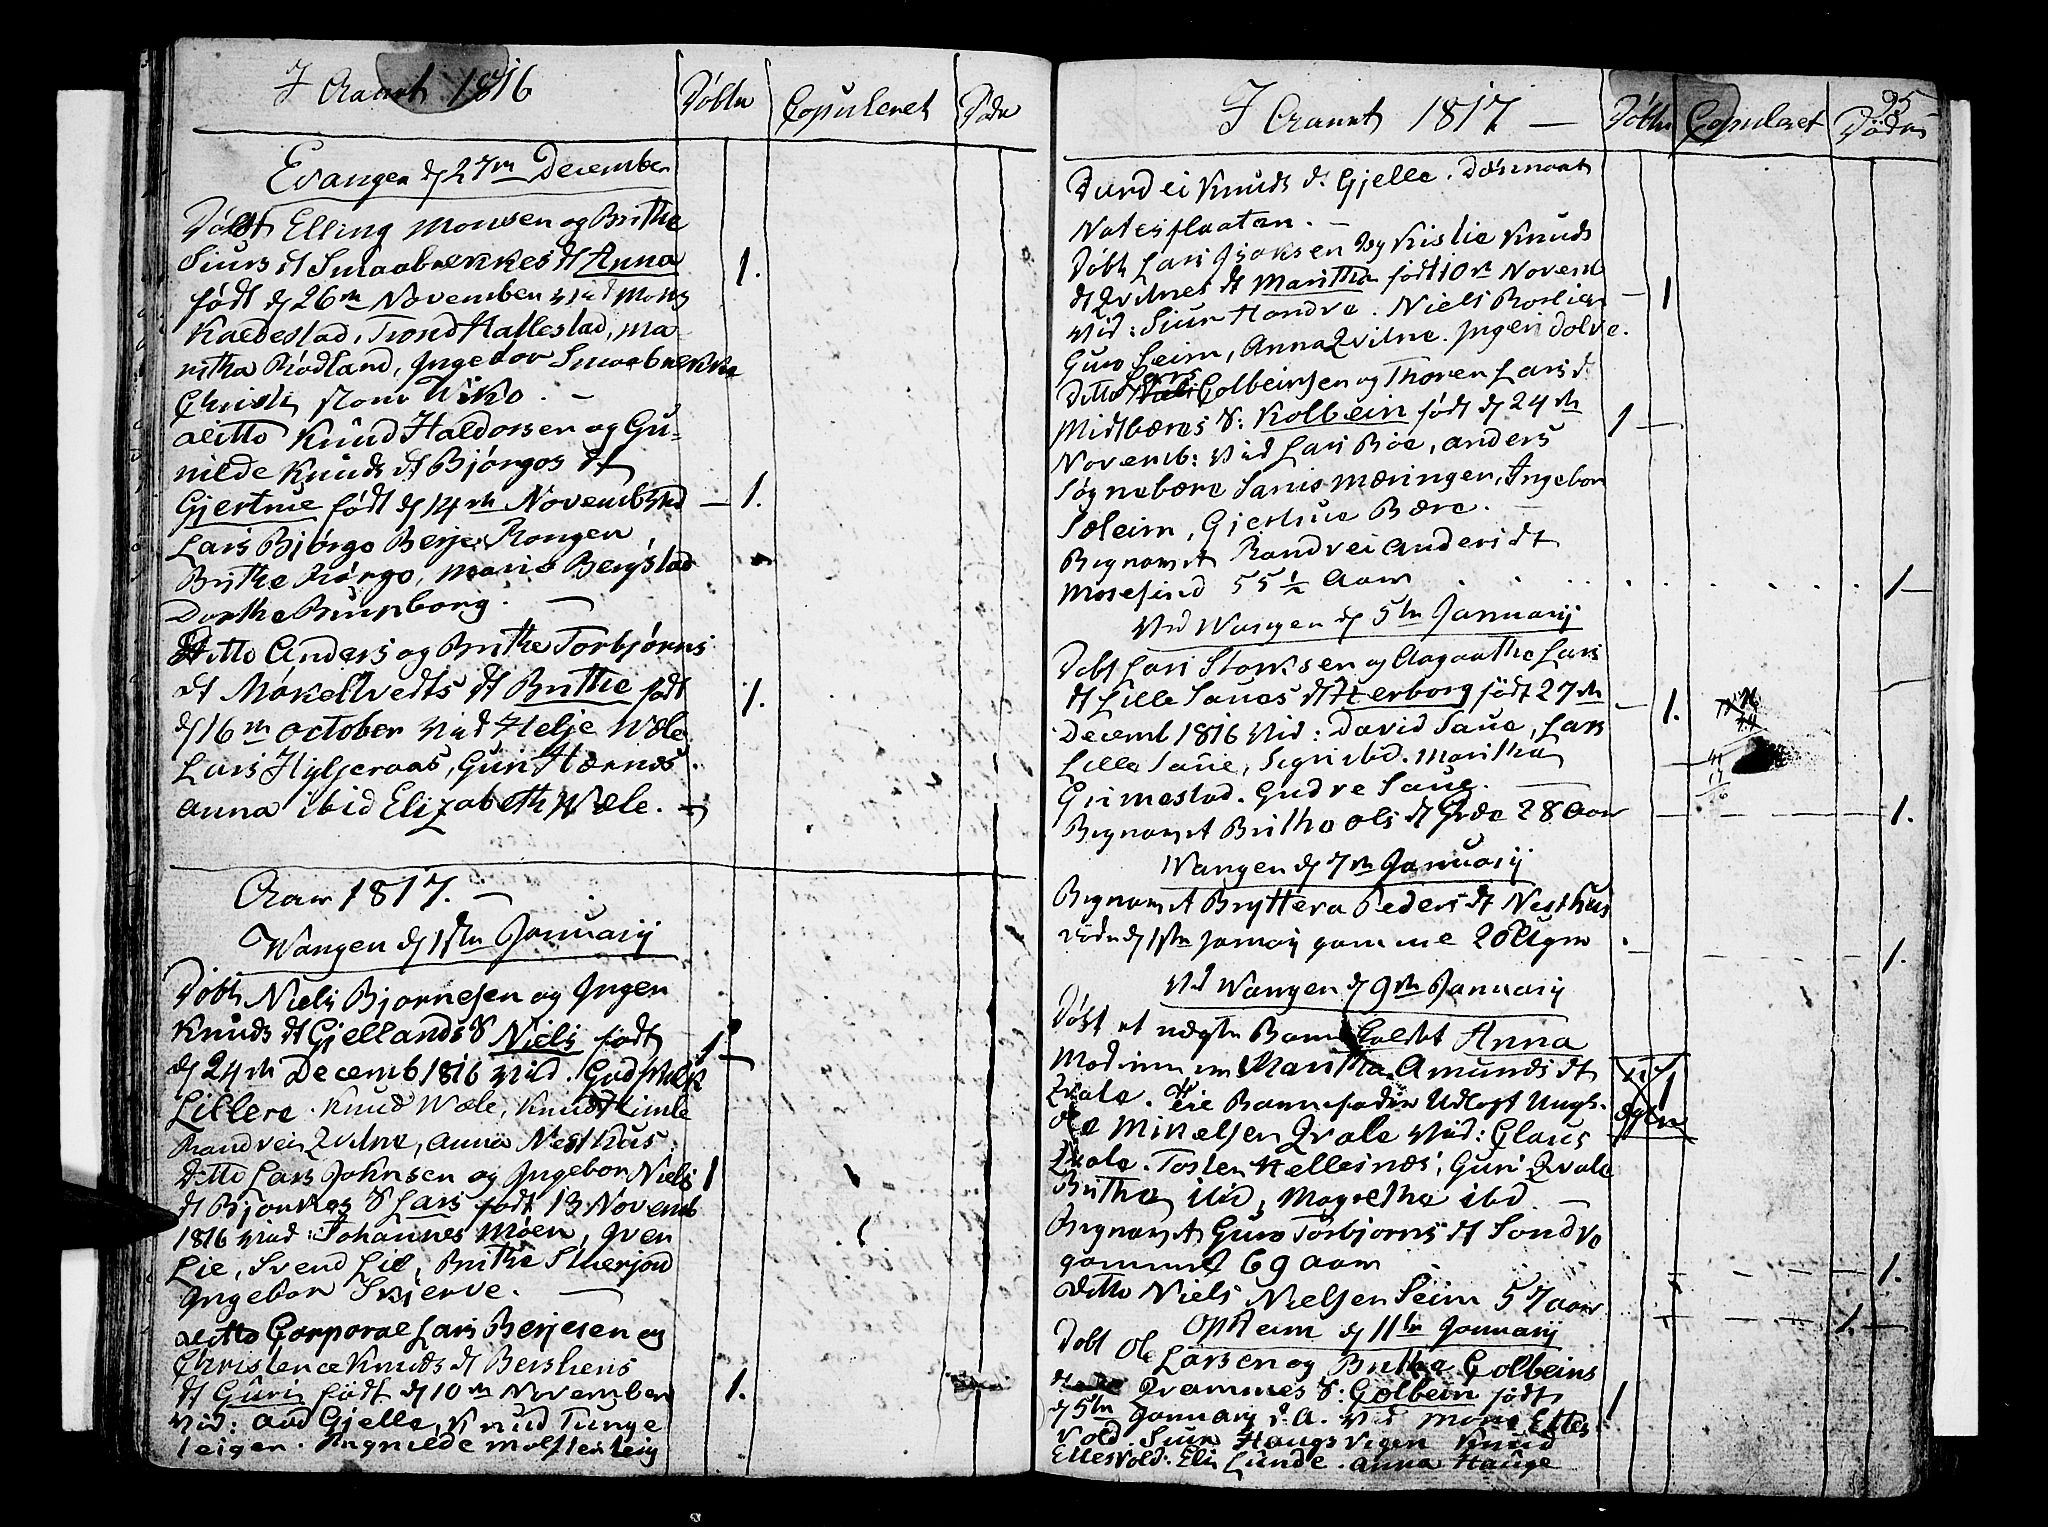 I Aaret 1816
Døbte Copuleret Døde
Evanger d 27de December
Døbt Elling Monsen og Brithe
Siurs dt Smaabrekkes dt Anna
født d 26de November vid Mons
Kaldestad, Trond Hallestad, Ma-
ritha Rødland, Ingebor Smaabrekke
Christi Uko. –
ditto Knud Haldorsen og Gu-
nilde Knuds dt Bjørgos dt
Gjertrue født d 14de Novemb vid
Lars Bjørgo Berje Rongen,
Brithe Rørgo, Maria Bergstad
Dorthe Brunborg. –
Ditto Anders og Brithe Torbjørns
dt Møkeltvedts dt Brithe født
d 16de October vid Helje Wæle
Lars Hyljeraas, Guri Hærnes.
Anna ibid Elizabeth Wæle. –
Aar 1817. –
Wangen d 1ste Januarij
Døbt Niels Bjornesen og Inger
Knuds dt Gjellands S Niels født
d 24de Decemb 1816 vid.
Lillere. Knud Wæle, Knud Himle
Randvei Zvilne, Anna Nesthus
Ditto Lars Johnsen og Ingebor Niels
dt Bjørkes S Lars født 13 Novemb
1816 vid: Johannes Møen, Iver
Lie, Svend Lie, Brithe
Ingebor Skjerve. –
ditto Corporal Lars Berjesen og
Christence Knuds dt
dt Guri født d 10de November
vid: Aad Gjelle, Knud Tunge
teigen. Ragnilde Molsterteig
I Aaret 1817 –
Døbte Copuleret Døde
95
Durdei Knuds dt Gjelle.
Notesflaaten. –
Døbt Lars Isaksen og Kistie Knuds
dt Zvilnes dt Maritha født 10de Novemb
vid: Siur Hondve. Niels
Guro Seim, Anna Zvilne. Inger Dolve.
Ditto Lars Colbeinsen og Thoren Lars d
Midtbæres S: Kolbein født d 24de
Novemb: vid Lars Bøe, Anders
Søgnebære Mæringen, Ingebor
Sæleim, Gjertrue Bære. –
Begravet Randvei Anders dt
Mosefind 55 ½ Aar
Vid Wangen d 5te Januarij
Døbt Lars Storksen og Aagaathe Lars
dt Lille Saues dt Herborg født 27de
Decemb 1816 vid: David Saue, Lars
Lille Saue, Sigri ibid. Maritha
Grimestad. Gudve Saue.
Begravet Britha Ols dt 28 Aar
Wangen d 7de Januarij
Begravet Bryttera Peders dt Nesthus
døde d 1ste gamme 20 Uger
Vid Wangen d 9de Januarij
Døbt et uægte Barn Kaldet Anna
Moderen er Maritha Amunds dt
Zvale. Barnefader Udlagt Ungk.
Ole Mikelsen Zvale vid: Claus
Zvale. Tosten Hellesnæs, Guri Zvale
Britha ibid, Magretha ibd –
Begravet Guro Torbjorns dt Sondve
gammel 69 Aar
Ditto Niels Nielsen Seim 57 Aar
Opheim d 11te Januarij
Døbt Ole Larsen og Brithe Colbeins
dt Zvammes S: Colbein født
d 5te Januarij d.A. vid Mons Elles
vold. Siur Haugsvigen Knud
Ellesvold. Eli Lunde. Anna Hauge